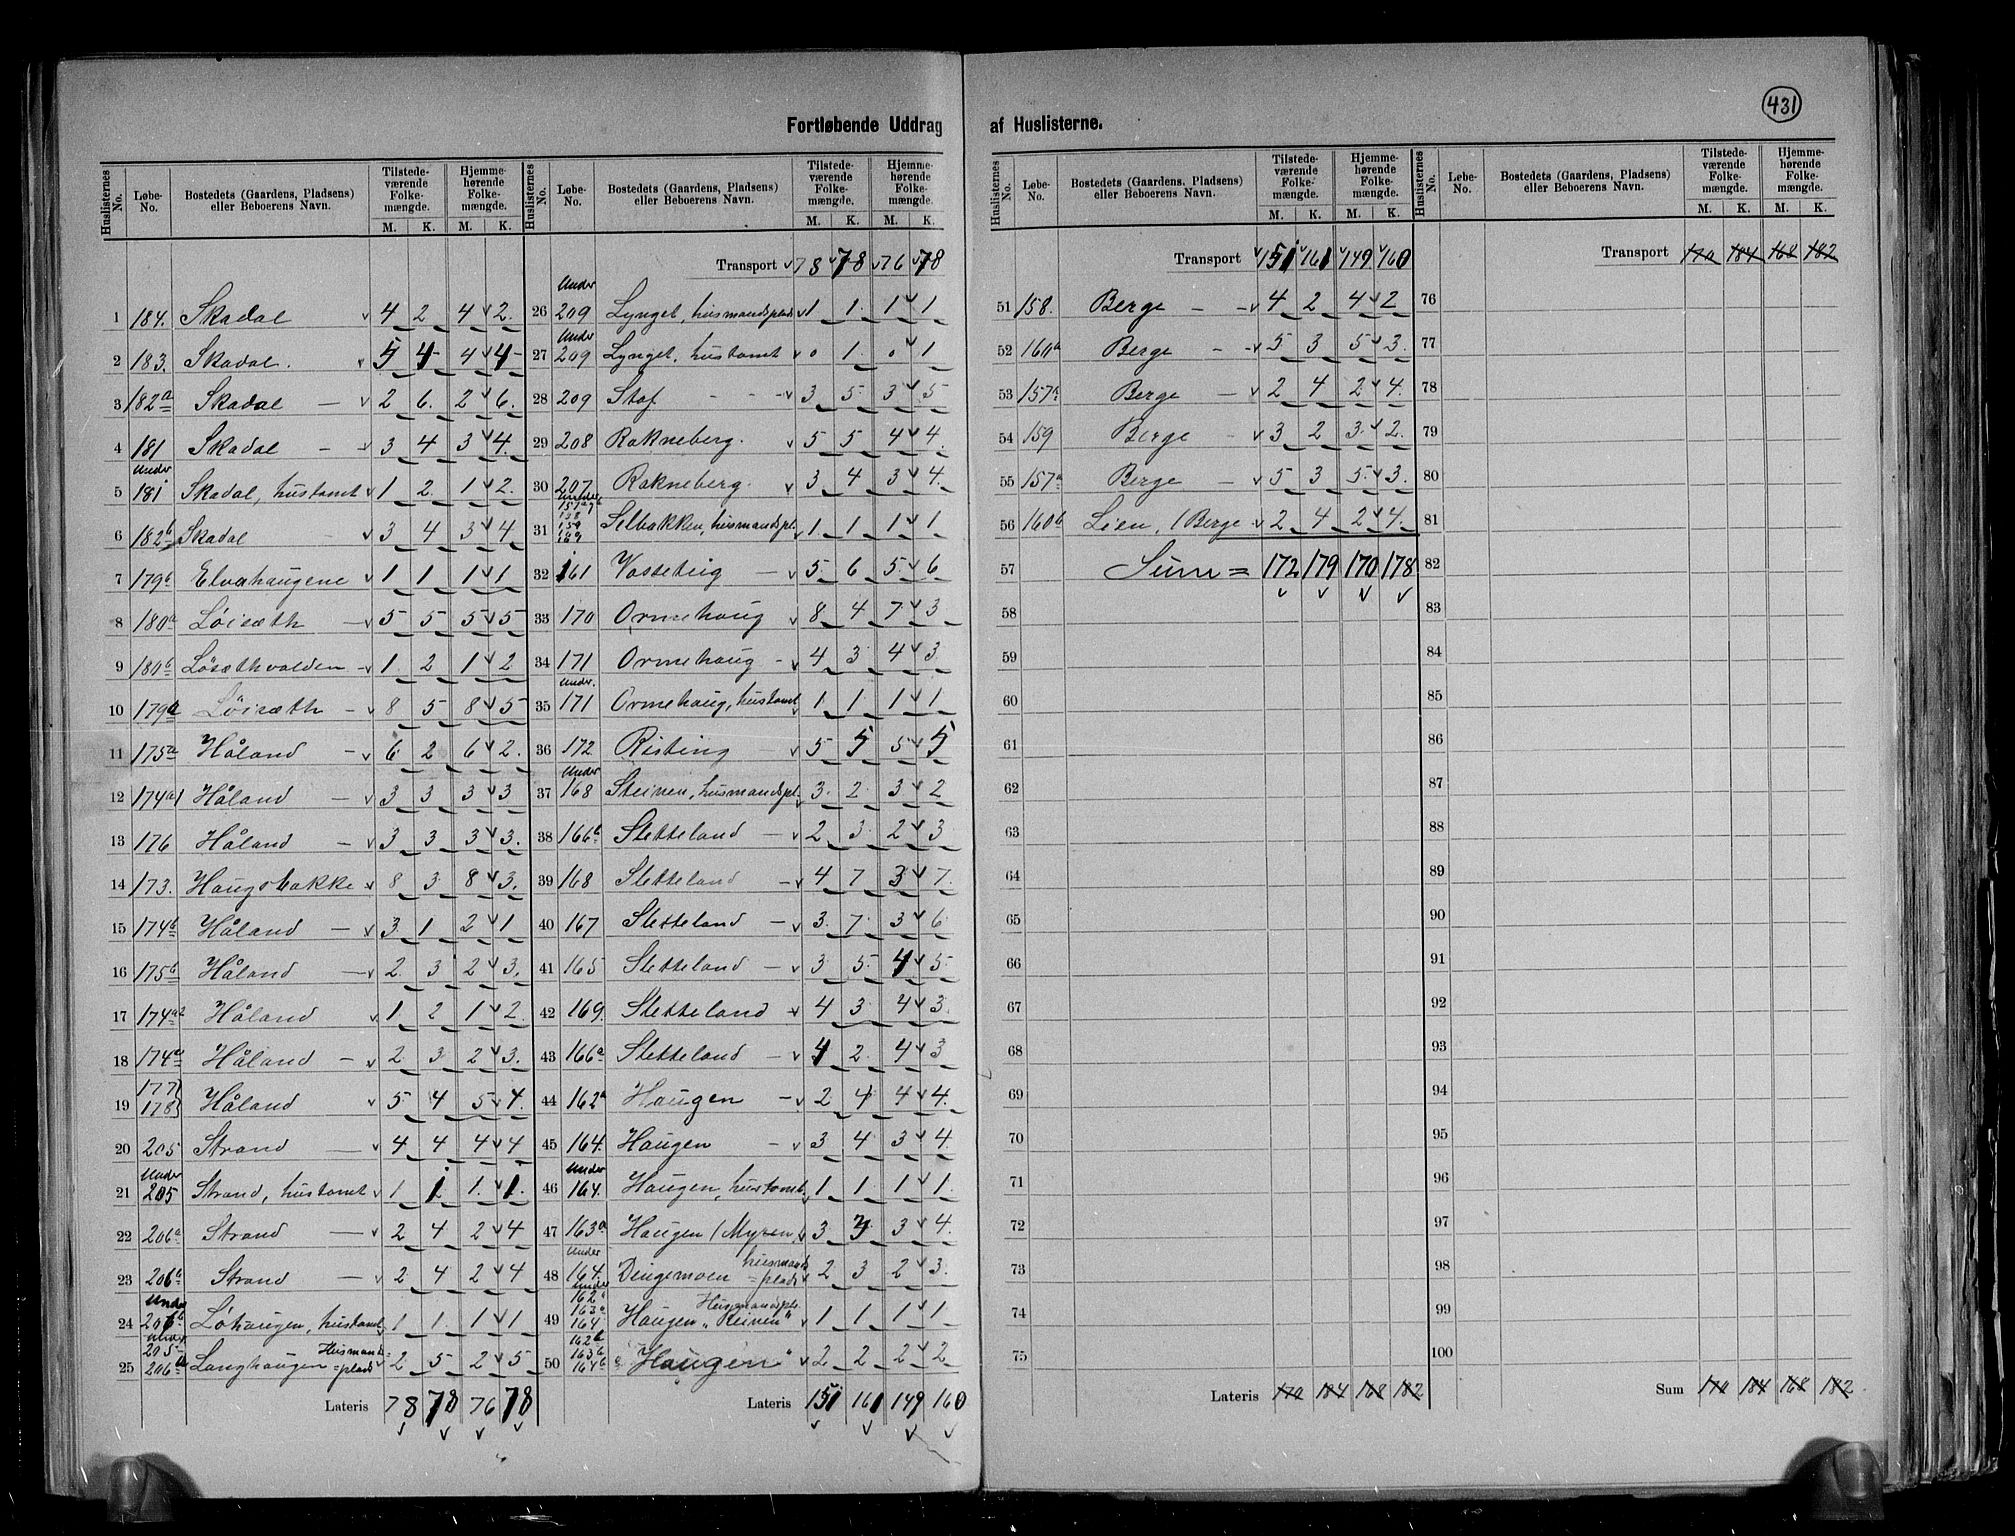 431
Fortløbende Uddrag af Huslisterne.
Huslisternes No. Løbe-No. Bostedets (Gaardens, Pladsens) eller Beboerens Navn. Tilstedeværende Folkemængde. M. K. Hjemmehørende Folkemængde. M. K.
1 184. Skadal 4 2 4 2.
2 183. Skadal. 5 4 4 4
3 182a Skadal 2 6. 2 6.
4 181 Skadal 3 4 3 4.
5 Under 181 Skadal, hustomt 1 2. 1 2.
6 182b Skadal 3 4 3 4
7 179b Elvahaugene 1 1 1 1
8 180a Løisæth 5 5 5 5
9 180b Løsæthvolden 1 2 1 2
10 179a Løisæth 8 5 8 5
11 175a Håland 6 2 6 2.
12 174a1 Håland 3 3 3 3
13 176 Håland 3 3 3 3.
14 173. Haugsbakke 8 3 8 3.
15 174b Håland 3 1 2 1
16 175b Håland 2 3 2 3.
17 174a2 Håland 1 2 1 2.
18 174a Håland 2 3 2 3.
19 177 178 Håland 5 4 5 4.
20 205 Strand 4 4 4 4
21 Under 205 Strand, hustomt 1 1 1. 1.
22 206a Strand 2 4 2 4
23 206b Strand 2 4 2 4
24 Under 206b Løhaugen, hustomt 1 1 1 1
25 Under 205 206a Langhaugen Husmands=plads 2 5 2 5
Lateris 78 78 76 78
Huslisternes No. Løbe-No. Bostedets (Gaardens, Pladsens) eller Beboerens Navn. Tilstedeværende Folkemængde. M. K. Hjemmehørende Folkemængde. M. K.
Transport 78 78 76 78
26 Under 209 Lynget, husmandsplads 1 1 1 1
27 Under 209 Lynget, hustomt 0 1 0 1
28 209 Stof 3 5 3 5
29 208 Rakneberg. 5 5 4 4.
30 207 Rakneberg. 3 4 3 4.
31 Under 158 159 Selbakken, husmandspl. 1 1 1 1
32 161 Vasseteig 5 6 5 6
33 170 Ormehaug 8 4 7 3
34 171 Ormehaug 4 3 4 3
35 Under. 171 Ormehaug, hustomt 1 1 1 1
36 172 Risting 5 5 5 5
37 Under 168 Steinen, husmandspl. 3 2 3 2
38 166b Sletteland 2 3 2 3
39 168 Sletteland 4 7 3 7.
40 167 Sletteland 3 7 3 6
41 165 Sletteland 3 5 4 5
42 169. Sletteland 4 3 4 3
43 166a Sletteland 4 2 4 3
44 162a Haugen 2 4 4 4.
45 164. Haugen 3 4 3 4.
46 Under 164. Haugen, hustomt. 1 1 1 1.
47 163a Haugen (Myren) 3 3 3 4.
48 Under 164. Dingemoen husmands=plads 2 3 2 3.
49 Under 162a 163a 164 Haugen "Reinen" Husmandspls. 1 1 1 1
50 162b 163b 164b "Haugen" 2 2 2 2
Lateris 151 161 149 160
Huslisternes No. Løbe-No. Bostedets (Gaardens, Pladsens) eller Beboerens Navn. Tilstedeværende Folkemængde. M. K. Hjemmehørende Folkemængde. M. K.
Transport 151 161 149 160
51 158. Berge 4 2 4 2
52 160a Berge 5 3 5 3.
53 Berge 2 4 2 4.
54 159 Berge 3 2 3 2.
55 Berge 5 3 5 3.
56 160b Lien, (Berge 2 4 2 4.
57 Sum = 172 179 170 178
58
59
60
61
62
63
64
65
66
67
68
69
70
71
72
73
74
75
Lateris 170 184 168 182
Huslisternes No. Løbe-No. Bostedets (Gaardens, Pladsens) eller Beboerens Navn. Tilstedeværende Folkemængde. M. K. Hjemmehørende Folkemængde. M. K.
Transport 170 184 168 182
76
77
78
79
80
81
82
83
84
85
86
87
88
89
90
91
92
93
94
95
96
97
98
99
100
Sum 170 184 168 182.